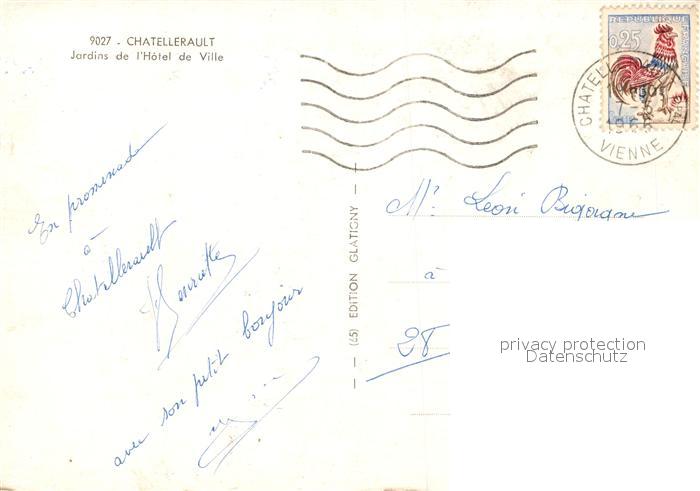 9027 - CHATELLERAULT
Jardins de l'Hôtel de Ville
RÉPUBLIQUE FRANÇAISE
0,25
CHATELLERAULT
VIENNE
En promenade
à
Chatellerault
Henriette
avec son petit bonjour
(45) EDITION GLATIGNY
Mr. Léon
à
28
privacy protection
Datenschutz